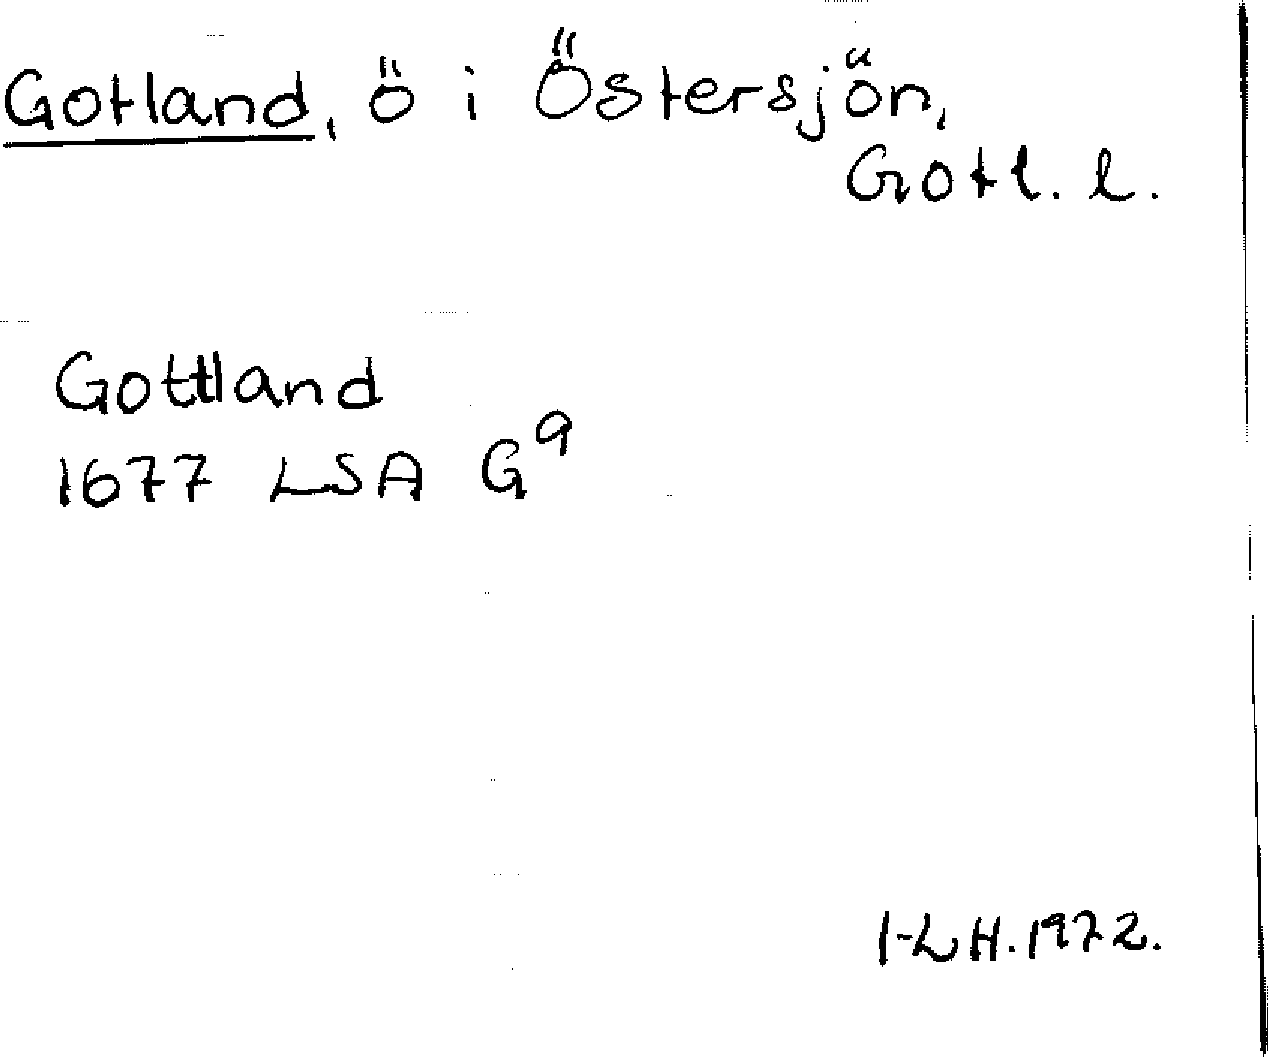 Gotland, ö i Östersjön,
Gotl. l.
Gottland
1677 LSA G9
I-LH. 1972.